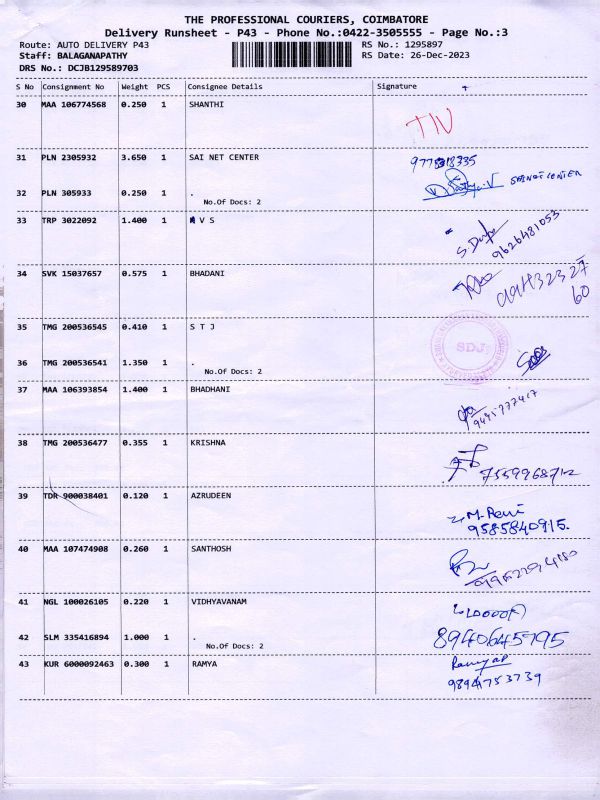 THE PROFESSIONAL COURIERS, COIMBATORE
Delivery Runsheet - P43 - Phone No.:0422-3505555 - Page No.:3
Route: AUTO DELIVERY P43 RS No.: 1295897
Staff: BALAGANAPATHY RS Date: 26-Dec-2023
DRS No.: DCJB129589703
S No Consignment No Weight PCS Consignee Details Signature
30 MAA 106774568 0.250 1 SHANTHI
31 PLN 2305932 3.650 1 SAI NET CENTER
32 PLN 305933 0.250 1 .
No.Of Docs: 2
33 TRP 3022092 1.400 1 V S
9626481053
34 SVK 15037657 0.575 1 BHADANI
35 TMG 200536545 0.410 1 S T J
SDJ
36 TMG 200536541 1.350 1 .
No.Of Docs: 2
37 MAA 106393854 1.400 1 BHADHANI
38 TMG 200536477 0.355 1 KRISHNA
7559968712
39 TDR 900038401 0.120 1 AZRUDEEN
9585840915.
40 MAA 107474908 0.260 1 SANTHOSH
41 NGL 100026105 0.220 1 VIDHYAVANAM
42 SLM 335416894 1.000 1 .
8940645795
No.Of Docs: 2
43 KUR 6000092463 0.300 1 RAMYA
9894753739